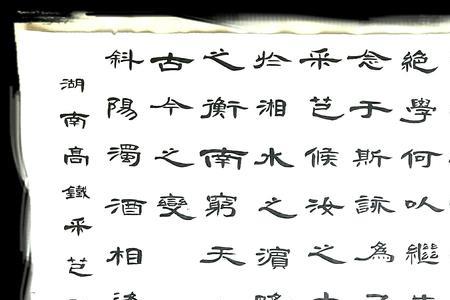 絶學何以繼
念于斯詠為
采芑候汝之
於湘水之濱
之衡南窮天
古今之變
斜陽濁酒相
湖南高鐵采芑